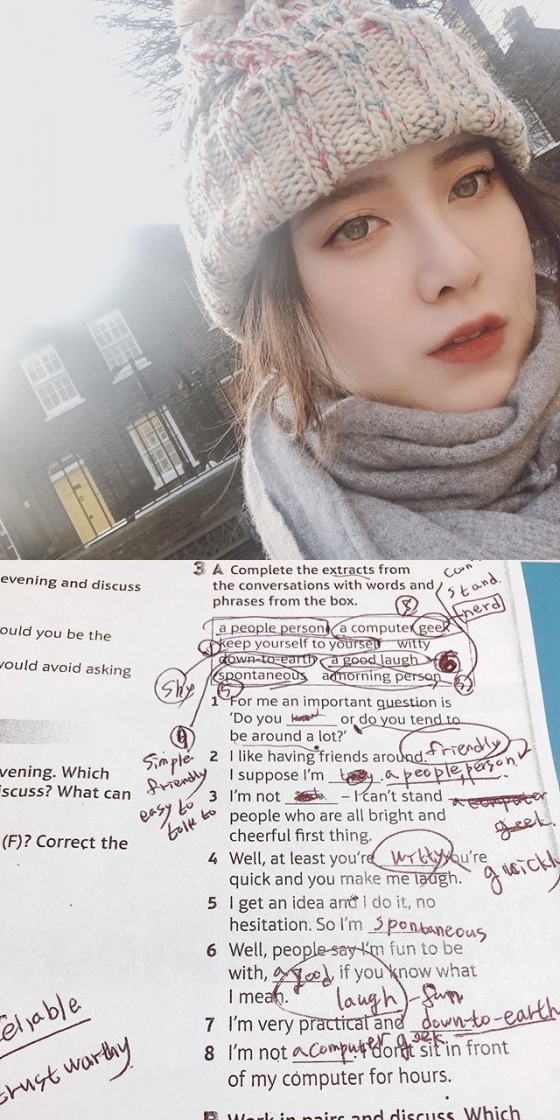 3 A Complete the extracts from
the conversations with words and
phrases from the box.
can
stand.
nerd
8
a people person a computer geek
keep yourself to yourself witty
down-to-earth a good laugh 6
spontaneous a morning person
shy
5
9
simple
friendly
easy to
talk to
evening and discuss
ould you be the
would avoid asking
vening. Which
iscuss? What can
(F)? Correct the
1 For me an important question is
'Do you or do you tend to
be around a lot?'
2 I like having friends around. friendly
I suppose I'm a people person.
3 I'm not – I can't stand a computer
people who are all bright and geek.
cheerful first thing.
4 Well, at least you're witty you're
quick and you make me laugh. quickly
5 I get an idea and I do it, no
hesitation. So I'm spontaneous
6 Well, people say I'm fun to be
with, a good if you know what
I mean. laugh - fun
7 I'm very practical and down-to-earth
8 I'm not a computer geek. I don't sit in front
of my computer for hours.
reliable
trust worthy
B Work in pairs and discuss. Which